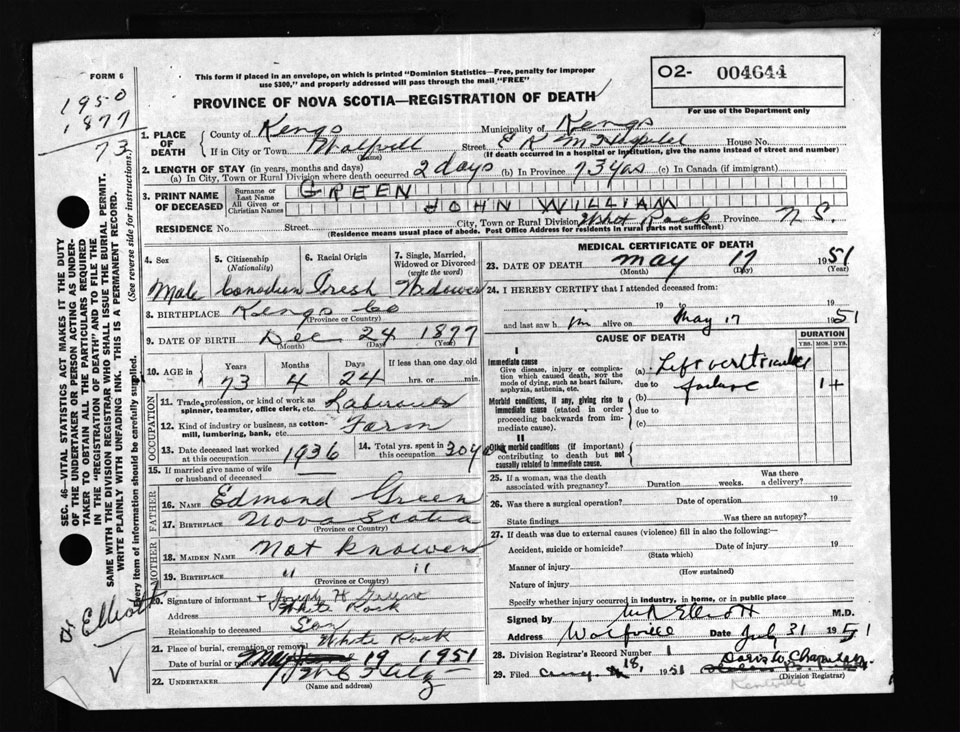 FORM 6
This form if placed in an envelope, on which is printed "Dominion Statistics—Free, penalty for improper
use $300," and properly addressed will pass through the mail "FREE"
O2- 004644
For use of the Department only
1950
1877
73
PROVINCE OF NOVA SCOTIA—REGISTRATION OF DEATH
1. PLACE OF DEATH
County of Kengs Municipality of Kengs
If in City or Town Wolfvill Street E K M Hospital House No.
(Name) (If death occurred in a hospital or institution, give the name instead of street and number)
2. LENGTH OF STAY (in years, months and days)
(a) In City, Town or Rural Division where death occurred 2 days (b) In Province 73 yrs (c) In Canada (if immigrant)
3. PRINT NAME OF DECEASED
Surname or Last Name GREEN
All Given or Christian Names JOHN WILLIAM
RESIDENCE No. Street City, Town or Rural Division White Rock Province N S.
(Residence means usual place of abode. Post Office Address for residents in rural parts not sufficient)
4. Sex
Male
5. Citizenship
(Nationality)
Canadien
6. Racial Origin
Iresh
7. Single, Married, Widowed or Divorced
(write the word)
Widower
8. BIRTHPLACE Kengs Co
(Province or Country)
9. DATE OF BIRTH Dec 24 1877
(Month) (Day) (Year)
10. AGE in
Years Months Days If less than one day old
73 4 24 hrs. or min.
OCCUPATION
11. Trade, profession, or kind of work as
spinner, teamster, office clerk, etc.
12. Kind of industry or business, as cotton-
mill, lumbering, bank, etc. Farm
13. Date deceased last worked
at this occupation 1936
14. Total yrs. spent in
this occupation 30
15. If married give name of wife
or husband of deceased
FATHER
16. NAME Edmond Green
17. BIRTHPLACE Nova Scotia
(Province or Country)
MOTHER
18. MAIDEN NAME Not Knowen
19. BIRTHPLACE " "
(Province or Country)
20. Signature of informant + Joseph H Greene
Address White Rock
Relationship to deceased Son
21. Place of burial, cremation or removal White Rock
Date of burial or removal May 19 1951
22. UNDERTAKER
(Name and address)
MEDICAL CERTIFICATE OF DEATH
23. DATE OF DEATH May 17 1951
(Month) (Day) (Year)
24. I HEREBY CERTIFY that I attended deceased from:
19 to 19
and last saw h im alive on May 17 1951
CAUSE OF DEATH
DURATION
YRS. MOS. DYS.
I
Immediate cause
Give disease, injury or complication which caused death, not the mode of dying, such as heart failure, asphyxia, asthenia, etc.
(a) Left ventricular
due to failure 1+
Morbid conditions, if any, giving rise to immediate cause (stated in order proceeding backwards from immediate cause).
(b)
due to
(c)
II
Other morbid conditions (if important) contributing to death but not causally related to immediate cause.
25. If a woman, was the death
associated with pregnancy? Duration weeks. Was there a delivery?
26. Was there a surgical operation? Date of operation 19
State findings Was there an autopsy?
27. If death was due to external causes (violence) fill in also the following:
Accident, suicide or homicide? Date of injury 19
(State which)
Manner of injury
(How sustained)
Nature of injury
Specify whether injury occurred in industry, in home, or in public place
Signed by Elliott M.D.
Address Wolfville Date July 31 1951
28. Division Registrar's Record Number 1
29. Filed 18, 1951 Doris W. Chapman
(Division Registrar)
Kentville
SEC. 46—VITAL STATISTICS ACT MAKES IT THE DUTY
OF THE UNDERTAKER OR PERSON ACTING AS UNDER-
TAKER TO OBTAIN ALL THE PARTICULARS REQUIRED
IN THE "REGISTRATION OF DEATH" AND TO FILE THE
SAME WITH THE DIVISION REGISTRAR WHO SHALL ISSUE THE BURIAL PERMIT.
WRITE PLAINLY WITH UNFADING INK. THIS IS A PERMANENT RECORD.
Every item of information should be carefully supplied. (See reverse side for instructions.)
Dr. Elliott